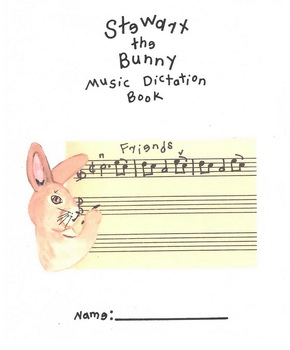 Stewart
the
Bunny
Music Dictation
Book
Friends
Name: